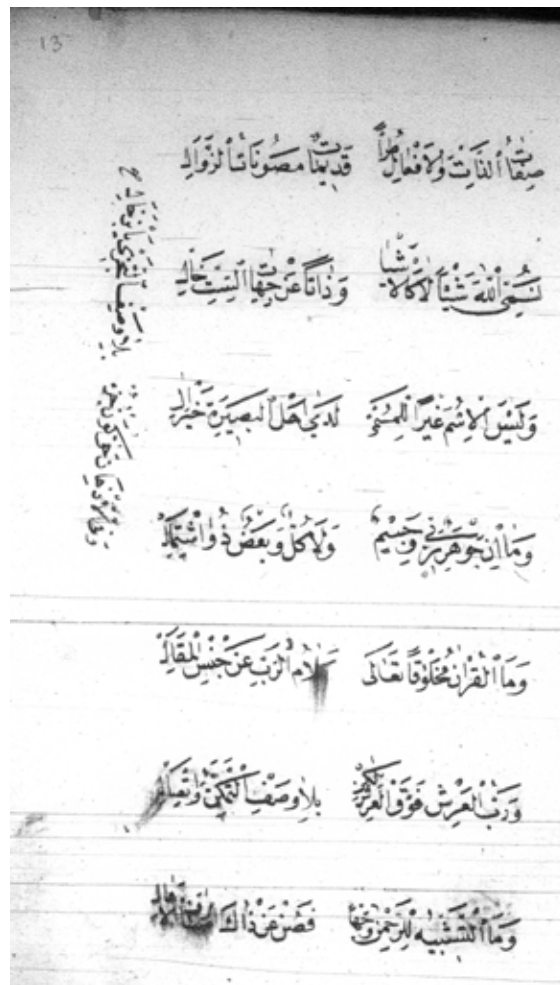 13
صِفَاتُ الذَّاتِ وَالاَفْعَالِ طُرًّا قَدِيمَاتٌ مَصُونَاتُ الزَّوَالِ
نُسَمِّى اللّٰهَ شَيْئًا لاَ كَالاَشْيَا وَذَاتًا عَنْ جِهَاتِ السِّتِّ خَالِ
وَلَيْسَ الاِسْمُ غَيْرًا لِلْمُسَمَّى لَدَى اَهْلِ الْبَصِيرَةِ خَيْرِ اٰلِ
وَمَا اِنْ جَوْهَرٌ رَبِّى وَجِسْمٌ وَلاَ كُلٌّ وَبَعْضٌ ذُو اشْتِمَالِ
وَمَا الْقُرْاٰنُ مَخْلُوقًا تَعَالَى كَلاَمُ الرَّبِّ عَنْ جِنْسِ الْمَقَالِ
وَرَبُّ الْعَرْشِ فَوْقَ الْعَرْشِ لٰكِنْ بِلاَ وَصْفِ التَّمَكُّنِ وَاتِّصَالِ
وَمَا التَّشْبِيهُ لِلرَّحْمٰنِ وَجْهًا فَصُنْ عَنْ ذَاكَ اَصْنَافَ الاَهَالِ
وَفِى الاَذْهَانِ حَقٌّ كَوْنُ جُزْءٍ
بِلاَ وَصْفِ التَّجَزِّى يَا ابْنَ خَالِ